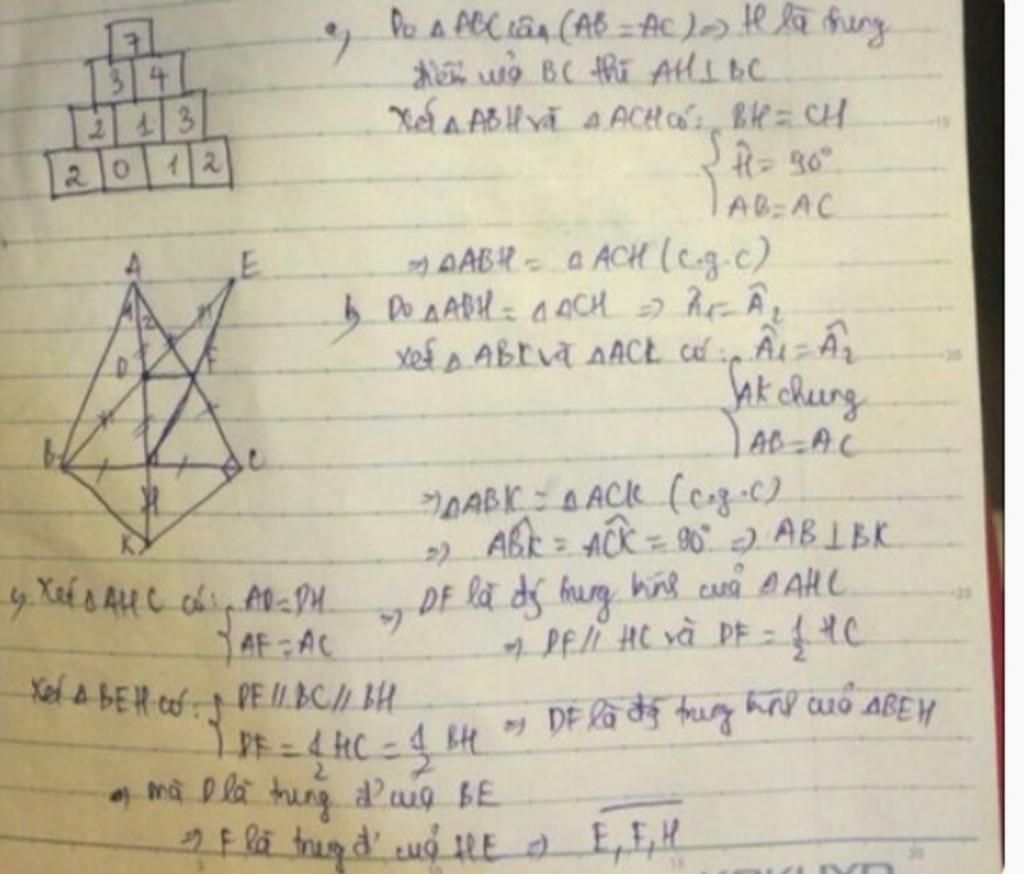 7
3 4
2 1 3
2 0 1 2
a, Do △ABC cân (AB = AC) => H là trung
điểm của BC thì AH ⊥ BC
Xét △ABH và △ACH có: BH = CH
Ĥ = 90°
AB = AC
=> △ABH = △ACH (c.g.c)
b, Do △ABH = △ACH => Â₁ = Â₂
Xét △ABK và △ACK có: Â₁ = Â₂
AK chung
AB = AC
=> △ABK = △ACK (c.g.c)
=> ABK̂ = ACK̂ = 90° => AB ⊥ BK
A E
1 2
D F
B C
H
K
c, Xét △AHC có: AD = DH
AF = AC
=> DF là đg trung bình của △AHC
=> DF // HC và DF = 1/2 HC
Xét △BEH có: DF // BC // BH
DF = 1/2 HC = 1/2 BH
=> DF là đg trung bình của △BEH
=> mà D là trung đ' của BE
=> F là trung đ' của HE => E, F, H